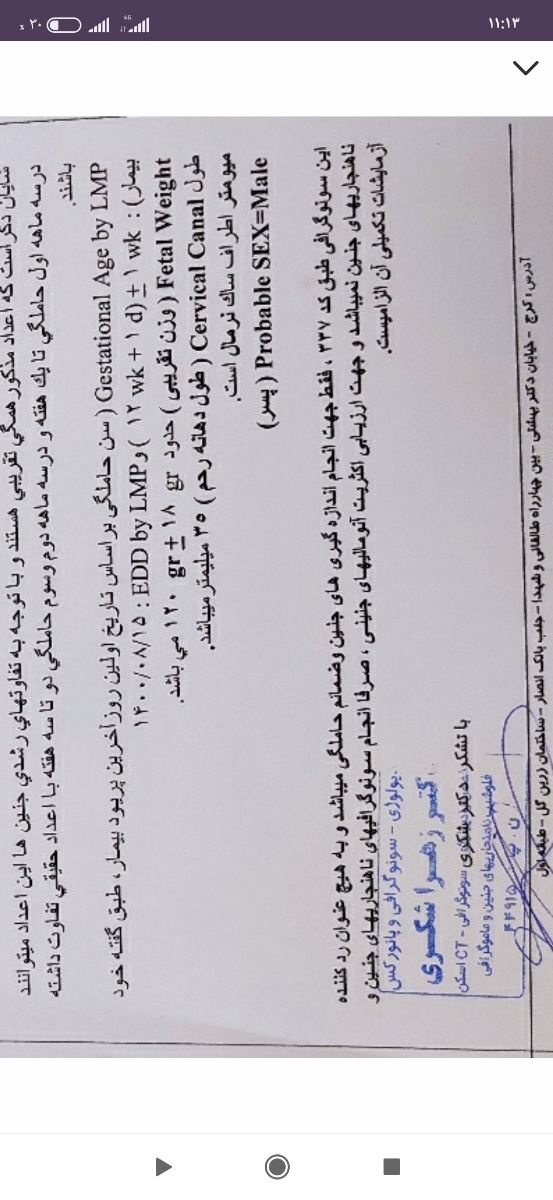 ۱۱:۱۳
4G
۳۰ ٪
شایان ذکر است که اعداد مذکور همگي تقریبي هستند و با توجه به تفاوتهاي رشدي جنین ها این اعداد میتوانند
در سه ماهه اول حاملگي تا یك هفته و در سه ماهه دوم وسوم حاملگي دو تا سه هفته با اعداد حقیقي تفاوت داشته
باشند.
Gestational Age by LMP ( سن حاملگی بر اساس تاریخ اولین روز آخرین پریود بیمار، طبق گفته خود
بیمار) : ۱۲ wk + ۱ d) ± ۱ wk ) و EDD by LMP : ۱۴۰۰/۰۸/۱۵
Fetal Weight ( وزن تقریبی ) حدود ۱۲۰ gr ± ۱۸ gr مي باشد.
طول Cervical Canal ( طول دهانه رحم ) ۳۵ میلیمتر میباشد.
میومتر اطراف ساك نرمال است.
Probable SEX=Male ( پسر)
این سونوگرافی طبق کد ۳۳۷ ، فقط جهت انجام اندازه گیری های جنین وضمائم حاملگی میباشد و به هیچ عنوان رد کننده
ناهنجاریهای جنین نمیباشد و جهت ارزیابی اکثریت آنومالیهای جنینی ، صرفا انجام سونوگرافیهای ناهنجاریهای جنین و
آزمایشات تکمیلی آن الزامیست.
با تشکر دکتر شکری
سونوگرافی و پانورکس
سونوگرافی - CT اسکن
جنین و ماموگرافی
ن . پ
آدرس : کرج - خیابان دکتر بهشتی - بین چهارراه طالقانی و شهدا - جنب بانک انصار - ساختمان زرین گل - طبقه اول